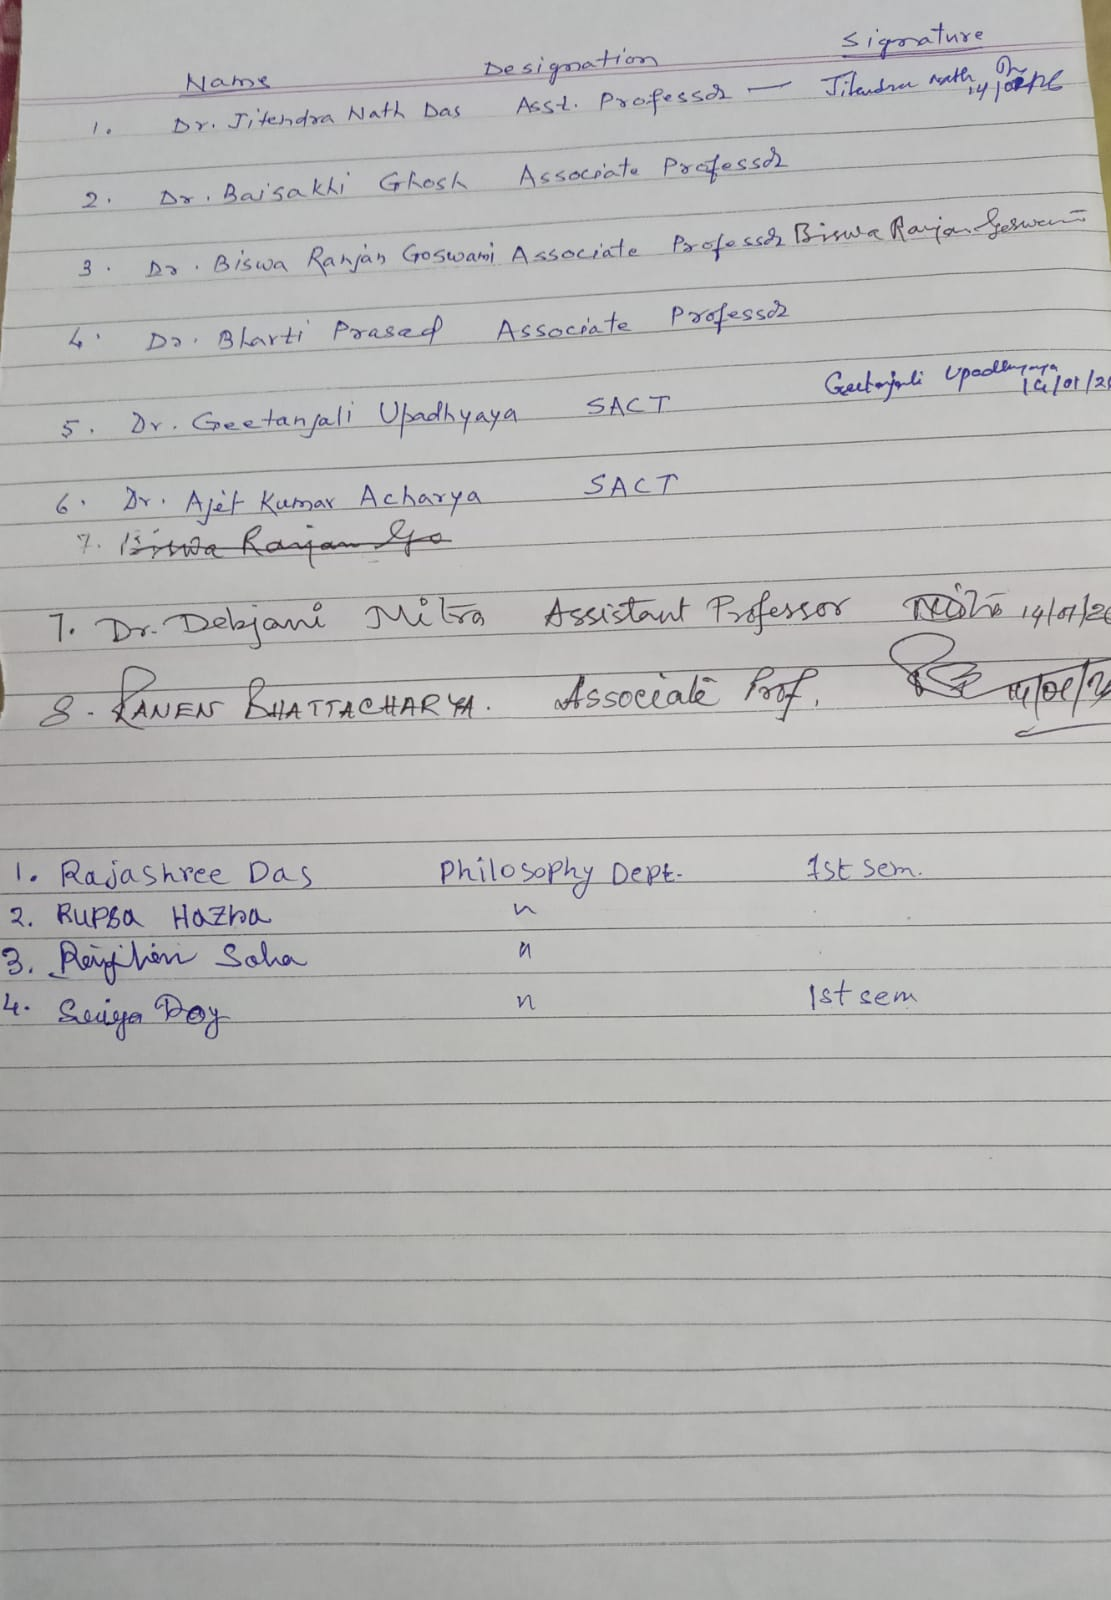 Name Designation Signature
1. Dr. Jitendra Nath Das Asst. Professor — Jitendra nath
2. Dr. Baisakhi Ghosh Associate Professor
3. Dr. Biswa Ranjan Goswami Associate Professor Biswa Ranjan Goswami
4. Dr. Bharti Prasad Associate Professor
5. Dr. Geetanjali Upadhyaya SACT Geetanjali Upadhyaya 14/01/26
6. Dr. Ajit Kumar Acharya SACT
7. Biswa Ranjan Go
7. Dr. Debjani Mitra Assistant Professor 14/01/26
8. RANEN BHATTACHARYA. Associate Prof.
1. Rajashree Das Philosophy Dept. 1st sem.
2. Rupsa Hazra "
3. Saha "
4. " 1st sem